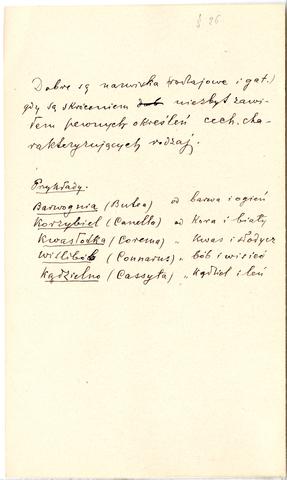 § 26
Dobre są nazwiska (rodzajowe i gat.)
gdy są skróceniem dub niezbyt zawi-
łem pewnych określeń cech, cha-
rakteryzujących rodzaj.
Przykłady.
Barwognia (Butea) od barwa i ogień
Korzybiel (Canella) od Kora i biały
Kwasłódka (Corema) „ Kwas i słodycz
Wislibób (Connarus) „ bób i wisieć
Kądzielno (Cassyta) „ Kądziel i len